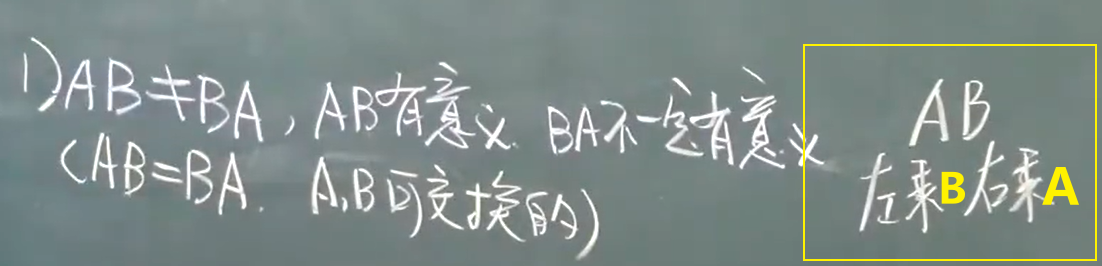 1) AB≠BA, AB有意义. BA不一定有意义
(AB=BA. A,B可交换的)
AB
左乘B右乘A